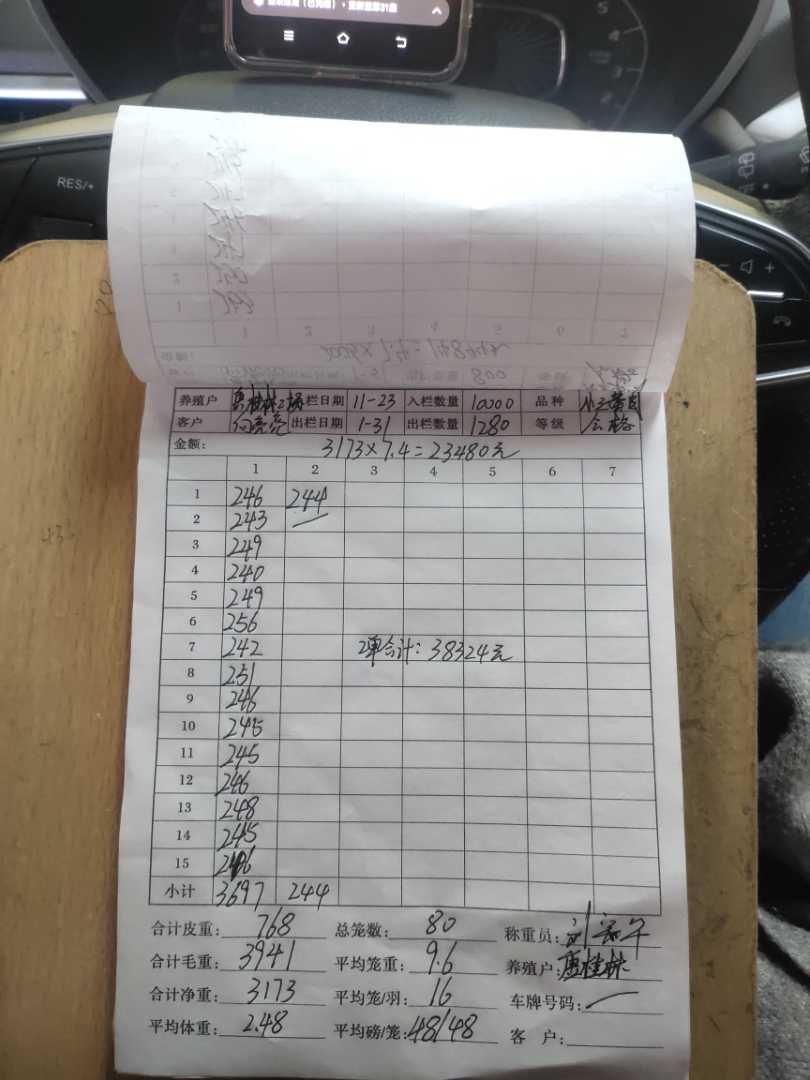 RES/+
养殖户 唐桂林2场 栏日期 11-23 入栏数量 10000 品种
客户 何亮亮 出栏日期 1-31 出栏数量 1280 等级 合格
金额： 3173×7.4=23480元
1 2 3 4 5 6 7
1 246 244
2 243
3 249
4 240
5 249
6 256
7 242 2单合计：38324元
8 251
9 246
10 245
11 245
12 246
13 248
14 245
15 246
小计 3697 244
合计皮重： 768 总笼数： 80 称重员：
合计毛重： 3941 平均笼重： 9.6 养殖户： 唐桂林
合计净重： 3173 平均笼/羽： 16 车牌号码：
平均体重： 2.48 平均磅/笼： 48/48 客 户：